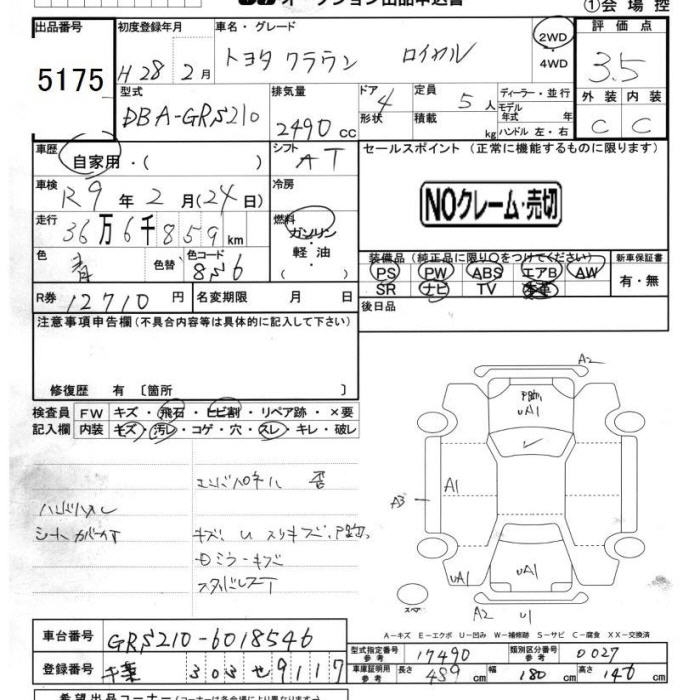 オークション出品申込書
①会場控
出品番号 5175
初度登録年月 H28 2月
車名・グレード トヨタ クラウン ロイヤル
2WD
4WD
評価点 3.5
型式 DBA-GRS210
排気量 2490 cc
ドア 4
形状
定員 5人
積載 kg
ディーラー・並行
モデル年式 年
ハンドル 左・右
外装 C 内装 C
車歴 自家用・( )
シフト AT
車検 R9年2月(24日)
冷房
走行 36万6千859km
燃料 ガソリン・軽油・( )
色 青 色替 色コード 8S6
R券 12710円 名変期限 月 日
セールスポイント (正常に機能するものに限ります)
NOクレーム・売切
装備品 (純正品に限り○をつけてください)
PS PW ABS エアB AW
SR ナビ TV 本革
新車保証書 有・無
後日品
注意事項申告欄 (不具合内容等は具体的に記入して下さい)
修復歴 有 〔箇所 〕
検査員記入欄
FW キズ・飛石・ヒビ割・リペア跡・×要
内装 キズ・汚レ・コゲ・穴・スレ・キレ・破レ
ハンドルスレ
シートカバー
キズ U スリキズ
ミラーキズ
A2
UA1
A1
A3
UA1
UA1
スペア
A2 U1
A-キズ E-エクボ U-凹み W-補修跡 S-サビ C-腐食 XX-交換済
車台番号 GRS210-6018546
登録番号 千葉 303 せ 9117
型式指定番号 参考 17490 類別区分番号 参考 0027
車庫証明用 参考 長さ 489cm 幅 180cm 高さ 146cm
希望出品コーナー (コーナーは各会場により異なります)